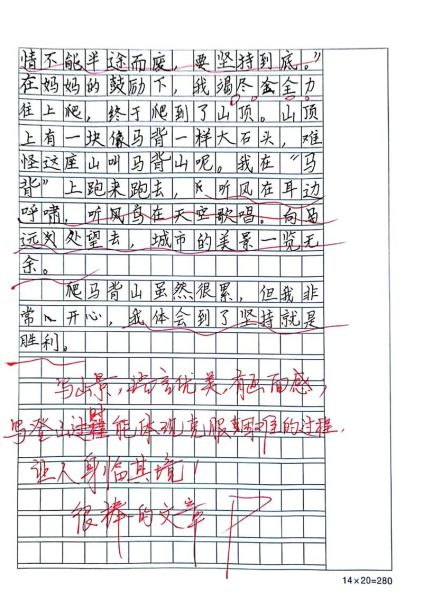 情不能半途而废，要坚持到底。”
在妈妈的鼓励下，我竭尽全力
往上爬，终于爬到了山顶。山顶
上有一块像马背一样大石头，难
怪这座山叫马背山呢。我在“马
背”上跑来跑去，听风在耳边
呼啸，听鸟在天空歌唱。向
远处望去，城市的美景一览无
余。
爬马背山虽然很累，但我非
常开心，我体会到了坚持就是
胜利。
写山景，语言优美，有画面感，
写登山过程时能体现克服困难的过程，
让人身临其境！
很棒的文章
14×20=280